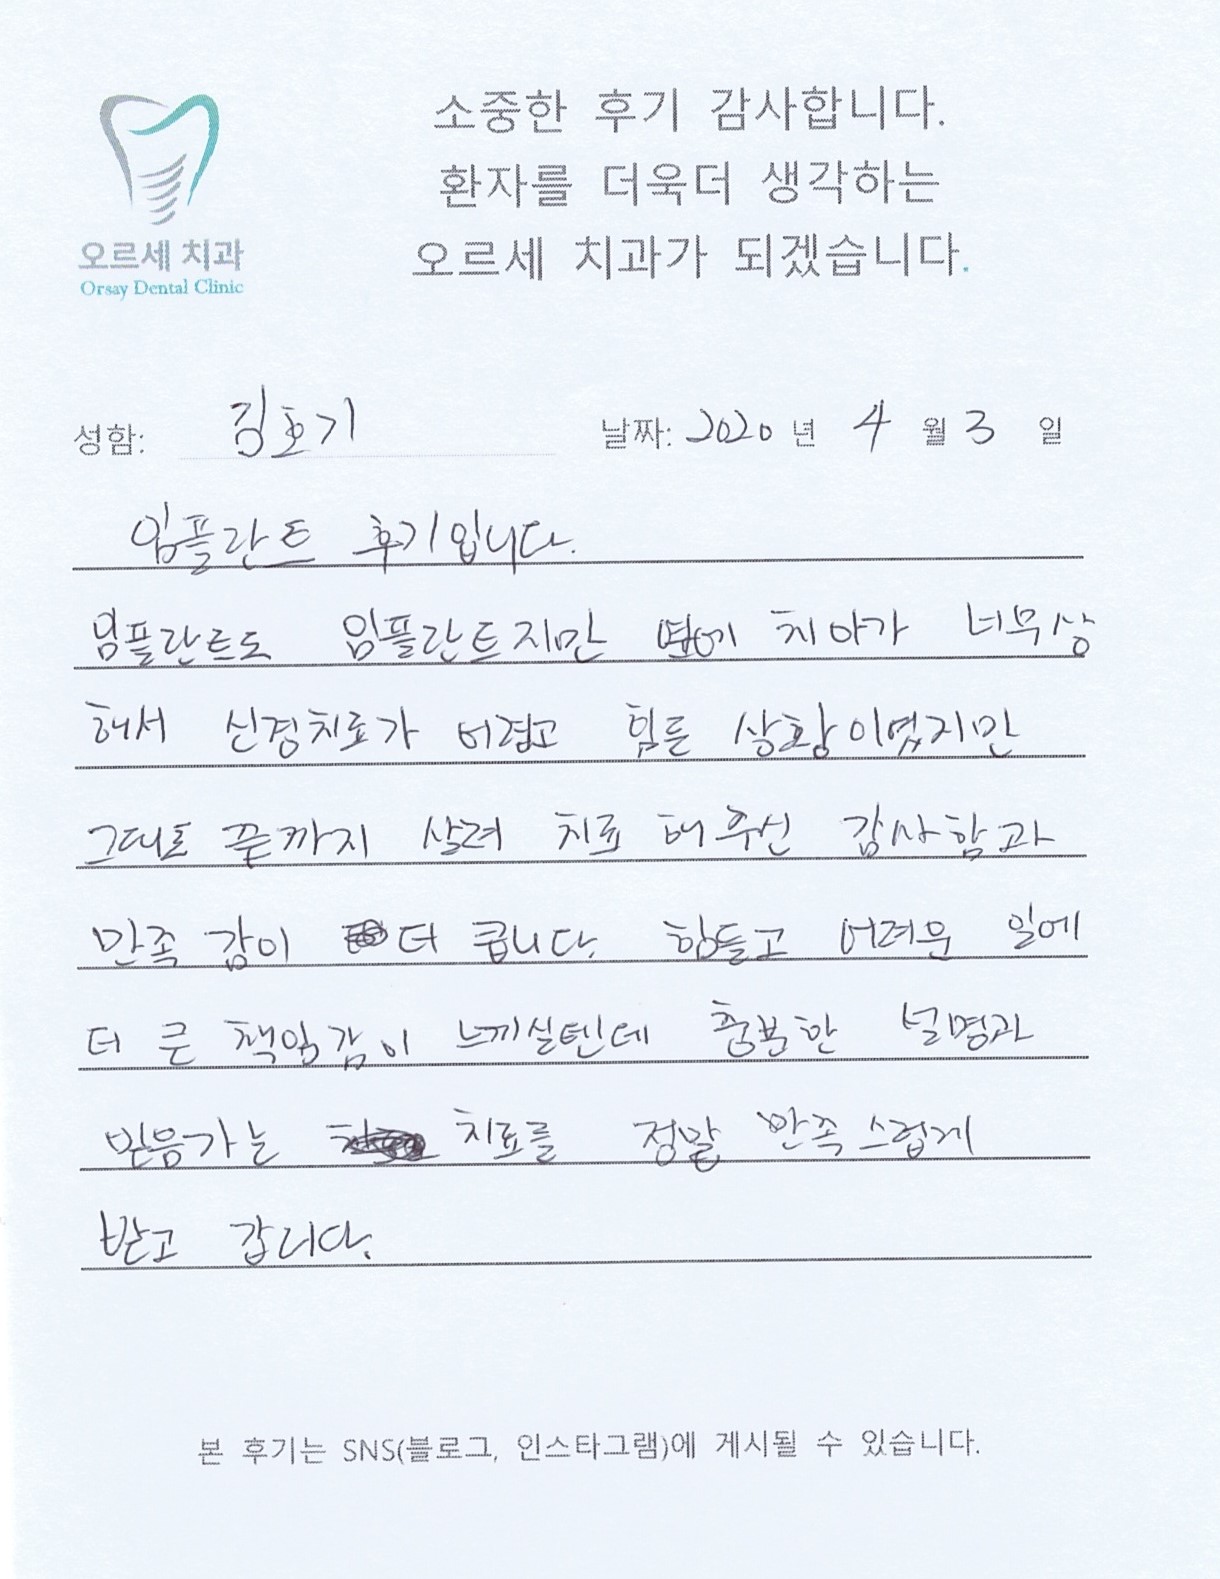 소중한 후기 감사합니다.
환자를 더욱더 생각하는
오르세 치과가 되겠습니다.
오르세 치과
Orsay Dental Clinic
성함: 김호기 날짜: 2020 년 4 월 3 일
임플란트 후기입니다.
임플란트도 임플란트지만 옆에 치아가 너무상
해서 신경치료가 어렵고 힘든 상황이였지만
그대로 끝까지 살려 치료 해주신 감사함과
만족 감이 더 큽니다. 힘들고 어려운 일에
더 큰 책임감이 느끼실텐데 충분한 설명과
믿음가는 치료를 정말 만족스럽게
받고 갑니다.
본 후기는 SNS(블로그, 인스타그램)에 게시될 수 있습니다.